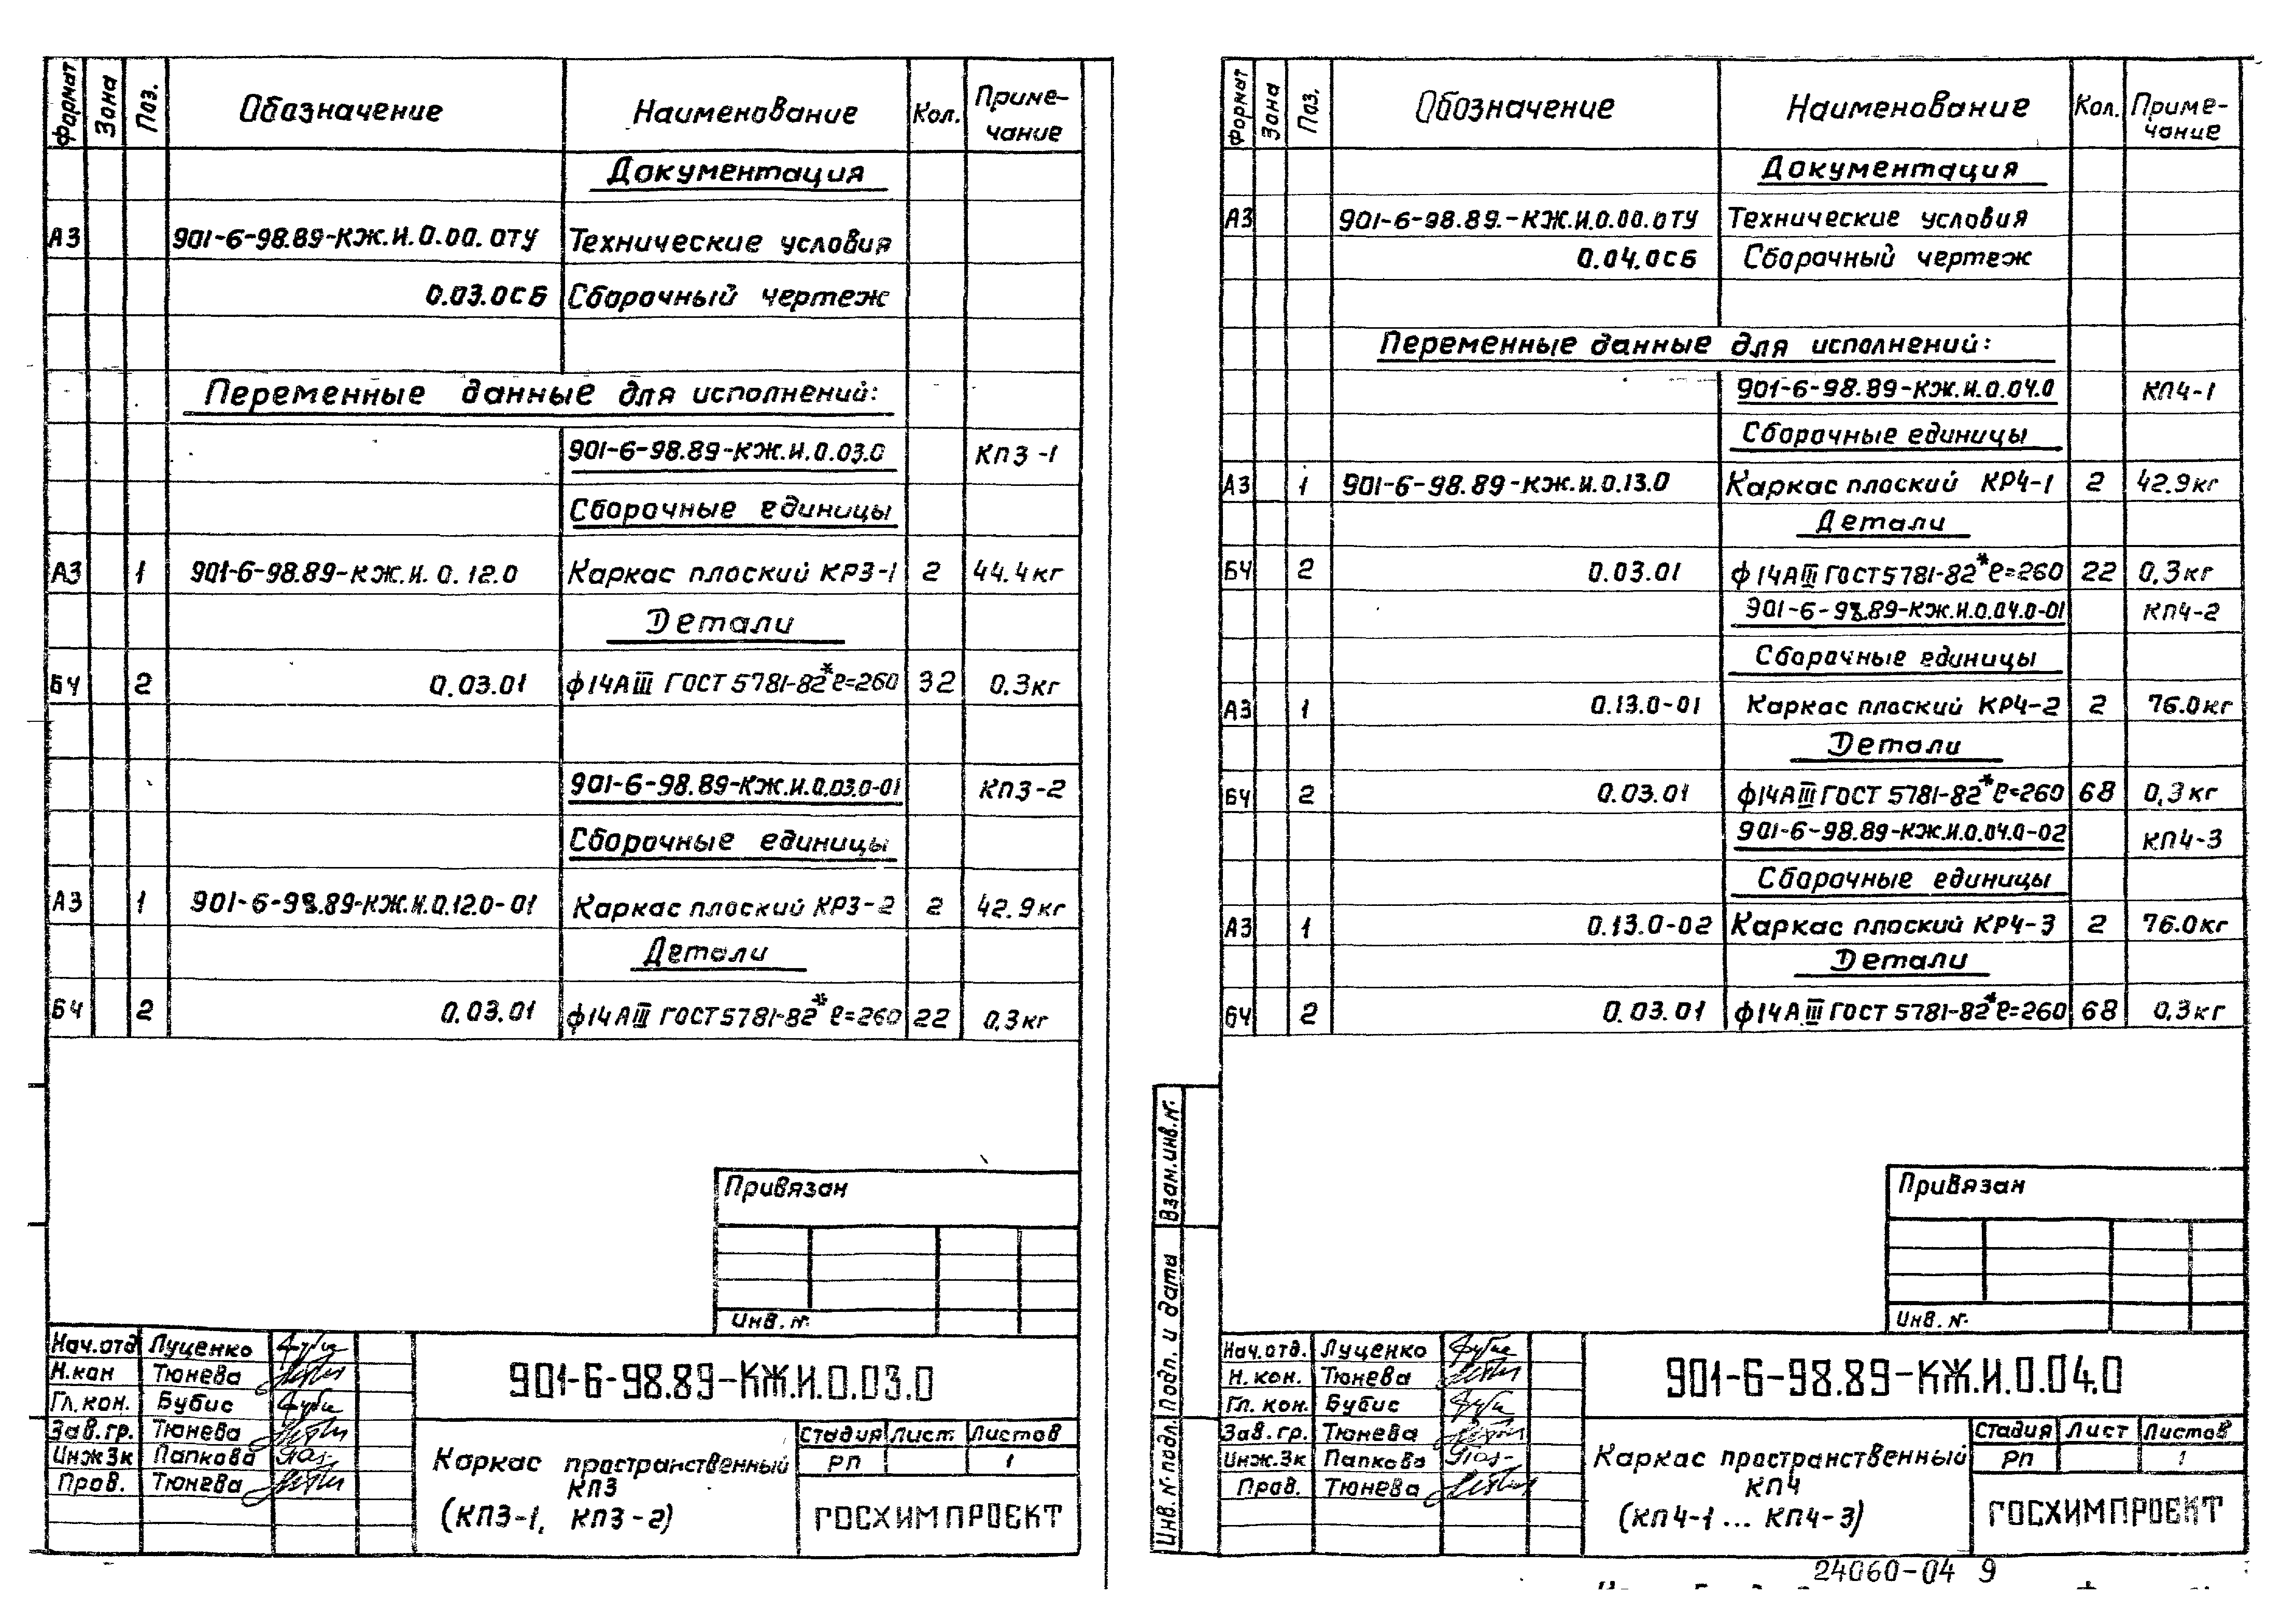 Формат Зона Поз. Обозначение Наименование Кол. Приме-
чание
Документация
А3 901-6-98.89-КЖ.И.0.00.0ТУ Технические условия
0.03.0СБ Сборочный чертеж
Переменные данные для исполнений:
901-6-98.89-КЖ.И.0.03.0 КП3-1
Сборочные единицы
А3 1 901-6-98.89-КЖ.И.0.12.0 Каркас плоский КР3-1 2 44.4кг
Детали
БЧ 2 0.03.01 ф14АIII ГОСТ 5781-82* ℓ=260 32 0.3кг
901-6-98.89-КЖ.И.0.03.0-01 КП3-2
Сборочные единицы
А3 1 901-6-98.89-КЖ.И.0.12.0-01 Каркас плоский КР3-2 2 42.9кг
Детали
БЧ 2 0.03.01 ф14АIII ГОСТ 5781-82* ℓ=260 22 0,3кг
Привязан
Инв. №
Нач.отд Луценко
Н.кон Тюнева
Гл.кон. Бубис
Зав.гр. Тюнева
Инж3к Папкова
Пров. Тюнева
901-6-98.89-КЖ.И.0.03.0
Каркас пространственный
КП3
(КП3-1, КП3-2)
Стадия Лист Листов
РП 1
ГОСХИМПРОЕКТ
Формат Зона Поз. Обозначение Наименование Кол. Приме-
чание
Документация
А3 901-6-98.89.-КЖ.И.0.00.0ТУ Технические условия
0.04.0СБ Сборочный чертеж
Переменные данные для исполнений:
901-6-98.89-КЖ.И.0.04.0 КП4-1
Сборочные единицы
А3 1 901-6-98.89-КЖ.И.0.13.0 Каркас плоский КР4-1 2 42.9кг
Детали
БЧ 2 0.03.01 ф14АIII ГОСТ 5781-82* ℓ=260 22 0,3кг
901-6-98.89-КЖ.И.0.04.0-01 КП4-2
Сборочные единицы
А3 1 0.13.0-01 Каркас плоский КР4-2 2 76.0кг
Детали
БЧ 2 0.03.01 ф14АIII ГОСТ 5781-82* ℓ=260 68 0,3кг
901-6-98.89-КЖ.И.0.04.0-02 КП4-3
Сборочные единицы
А3 1 0.13.0-02 Каркас плоский КР4-3 2 76.0кг
Детали
БЧ 2 0.03.01 ф14АIII ГОСТ 5781-82* ℓ=260 68 0,3кг
Взам.инв.№
Подп. и дата
Инв. № подл.
Привязан
Инв. №
Нач.отд. Луценко
Н.кон. Тюнева
Гл. кон. Бубис
Зав.гр. Тюнева
Инж.3к Папкова
Пров. Тюнева
901-6-98.89-КЖ.И.0.04.0
Каркас пространственный
КП4
(КП4-1 ... КП4-3)
Стадия Лист Листов
РП 1
ГОСХИМПРОЕКТ
24060-04 9